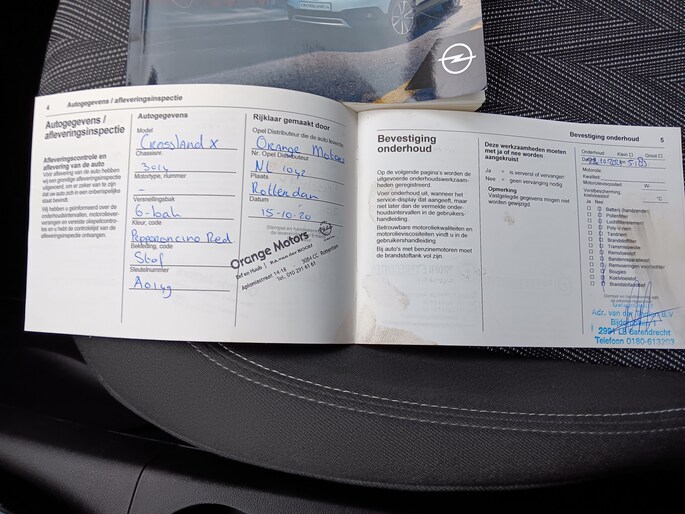 4 Autogegevens / afleveringsinspectie
Autogegevens /
afleveringsinspectie
Afleveringscontrole en
aflevering van de auto
Vóór aflevering van de auto hebben
wij een grondige afleveringsinspectie
uitgevoerd, om er zeker van te zijn
dat uw auto zich in een onberispelijke
staat bevindt.
Wij hebben u geïnformeerd over de
onderhoudsintervallen, motoroliever-
versingen en vereiste oliepeilcontro-
les en u hebt de controlelijst van de
afleveringsinspectie ontvangen.
Autogegevens
Model
Crossland X
Chassisnr.
3014
Motortype, nummer
-
Versnellingsbak
6-bak
Kleur, code
Pepperoncino Red
Bekleding, code
Stof
Sleutelnummer
A0149
Rijklaar gemaakt door
Opel Distributeur die de auto leverde
Orange Motors
Nr. Opel Distributeur
NL 1042
Plaats
Rotterdam
Datum
15-10-20
Orange Motors
3084 CC Rotterdam
Tel. 010 291 61 61
Bevestiging
onderhoud
Op de volgende pagina's worden de
uitgevoerde onderhoudswerkzaam-
heden geregistreerd.
Voer onderhoud uit, wanneer het
service-display dat aangeeft, maar
niet later dan de vermelde onder-
houdsintervallen in de gebruikers-
handleiding.
Betrouwbare motoroliekwaliteiten en
motorolieviscositeiten vindt u in de
gebruikershandleiding
Bij auto's met benzinemotoren moet
de brandstoftank vol zijn.
Deze werkzaamheden moeten
met ja of nee worden
aangekruist
Ja = is ververst of vervangen
Nee = geen vervanging nodig
Opmerking
Vastgelegde gegevens mogen niet
worden gewijzigd
Bevestiging onderhoud 5
Onderhoud: Klein Groot
Motorolie:
Kwaliteit
Motorolieviscositeit W-
°C
Ja Nee
Batterij (handzender)
Pollenfilter
Luchtfilterelement
Poly V-riem
Tandriem
Brandstoffilter
Transmissieolie
Remvloeistof
Bandenreparatieset
Bougies
Koelvloeistof
Brandstofadditief
2991 LB Barendrecht
Telefoon 0180-613203